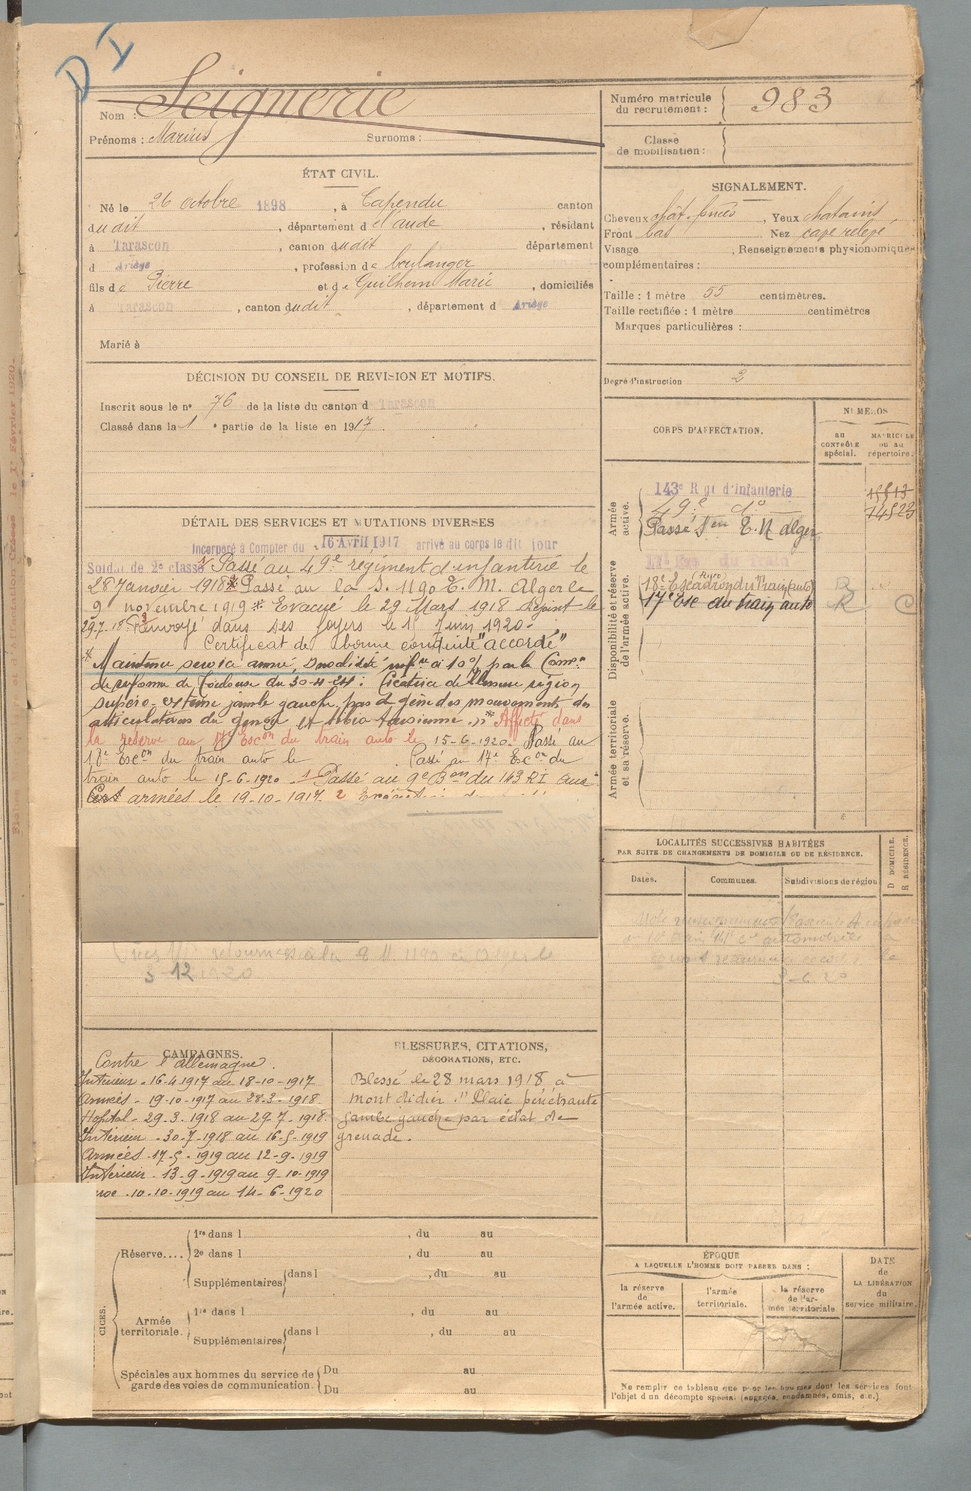 D I
Nom : Seignerie
Prénoms : Marius Surnoms :
Numéro matricule du recrutement : 983
Classe de mobilisation :
ÉTAT CIVIL.
Né le 26 octobre 1898, à Capendu canton
dudit, département de l'aude, résidant
à Tarascon, canton dudit département
d Ariège, profession de boulanger
fils de Pierre et de Guilhem Marie, domiciliés
à Tarascon, canton dudit, département d Ariège
Marié à
SIGNALEMENT.
Cheveux chât. foncés, Yeux chatains
Front bas Nez cave relevé
Visage , Renseignements physionomiques
complémentaires :
Taille : 1 mètre 55 centimètres.
Taille rectifiée : 1 mètre centimètres
Marques particulières :
Degré d'instruction 2
DÉCISION DU CONSEIL DE REVISION ET MOTIFS.
Inscrit sous le n° 76 de la liste du canton d Tarascon
Classé dans la 1e partie de la liste en 1917.
CORPS D'AFFECTATION.
NUMÉROS
au contrôle spécial.
MATRICULE ou au répertoire.
Armée active.
143e Rgt d'Infanterie
49e do 14523
Passé Son E. M alger
Disponibilité et réserve de l'armée active.
18e Escadron du Train auto R
17e Esc du train auto R C
Armée territoriale et sa réserve.
DÉTAIL DES SERVICES ET MUTATIONS DIVERSES
Incorporé à Compter du 16 Avril 1917 arrivé au corps le dit jour
Soldat de 2e classe Passé au 49e régiment d'infanterie le
28 Janvier 1918 Passé au la S. E. M. Alger le
9 novembre 1919 Evacué le 29 Mars 1918 Dépôt le
29.7.18 Renvoyé dans ses foyers le 15 Juin 1920.
Certificat de bonne conduite "accordé"
Maintenu service armé, Invalidité infre à 10% par la Comon
de réforme de Toulouse du 30-4-24 : Cicatrice de blessure région
supéro-externe jambe gauche, pas de gêne des mouvements des
articulations du genou et tibio tarsienne. Affecté dans
la réserve au 17e Escon du train auto le 15-6-1920. Passé au
18e Escon du train auto le Passé au 17e Econ du
train auto le 15-6-1920 1 Passé au 9e Bon du 143 RI aux
armées le 19-10-1917. 2
retourné
12 1920
LOCALITÉS SUCCESSIVES HABITÉES
PAR SUITE DE CHANGEMENTS DE DOMICILE OU DE RÉSIDENCE.
Dates. Communes. Subdivisions de région
D DOMICILE. R RÉSIDENCE.
CAMPAGNES.
Contre l'Allemagne.
Intérieur - 16-4-1917 au 18-10-1917
Armées - 19-10-1917 au 28-3-1918
Hopital - 29-3-1918 au 29-7-1918
Intérieur - 30-7-1918 au 16-5-1919
Armées - 17-5-1919 au 12-9-1919
Intérieur - 13-9-1919 au 9-10-1919
10-10-1919 au 14-6-1920
BLESSURES, CITATIONS,
DÉCORATIONS, ETC.
Blessé le 28 mars 1918 à
Montdidier "Plaie pénétrante
jambe gauche par éclat de
grenade.
Réserve.... 1re dans l , du au
2e dans l , du au
Supplémentaires dans l , du au
Armée territoriale. 1re dans l , du au
Supplémentaires dans l , du au
Spéciales aux hommes du service de garde des voies de communication. Du au
Du au
ÉPOQUE
A LAQUELLE L'HOMME DOIT PASSER DANS :
la réserve de l'armée active.
l'armée territoriale.
la réserve de l'armée territoriale
DATE de LA LIBÉRATION du service militaire.
Ne remplir ce tableau que pour les hommes dont les services font
l'objet d'un décompte spécial (engagés, condamnés, omis, etc.)